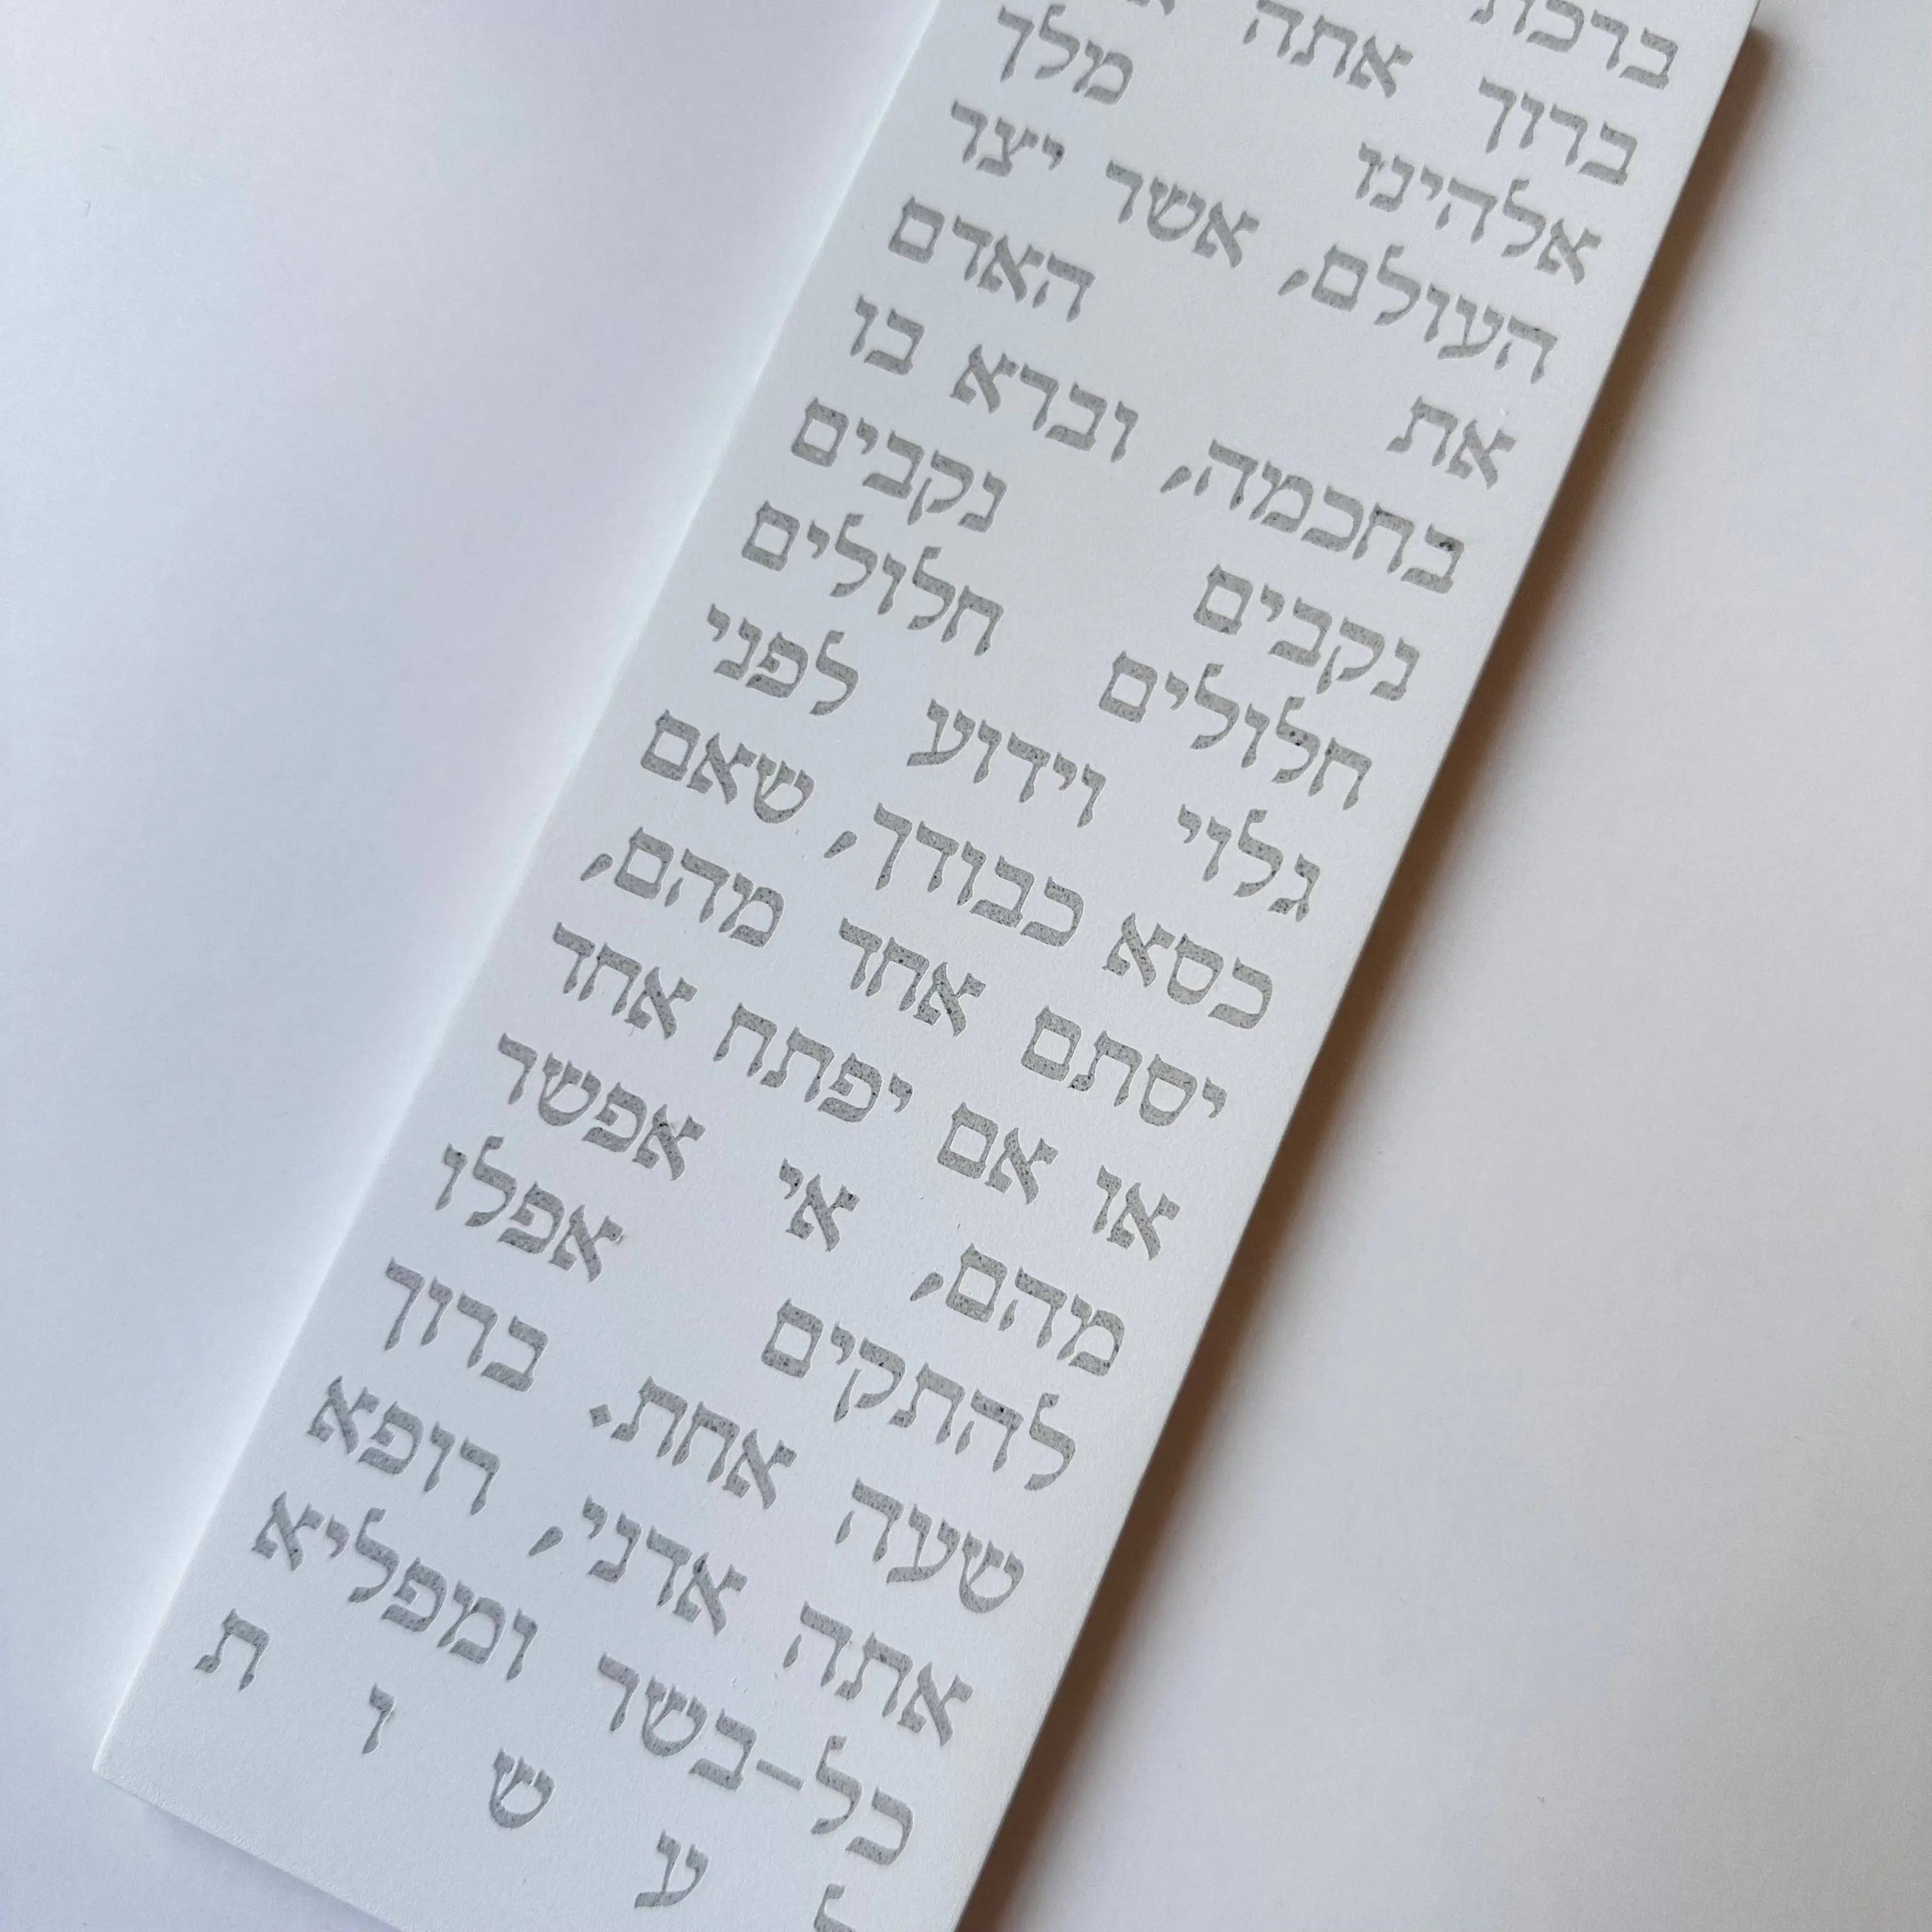 ברכת
ברוך אתה
אלהינו מלך
העולם, אשר יצר
את האדם
בחכמה, וברא בו
נקבים נקבים
חלולים חלולים
גלוי וידוע לפני
כסא כבודך, שאם
יסתם אחד מהם,
או אם יפתח אחד
מהם, אי אפשר
להתקים אפלו
שעה אחת. ברוך
אתה אדני, רופא
כל-בשר ומפליא
ל ע ש ו ת